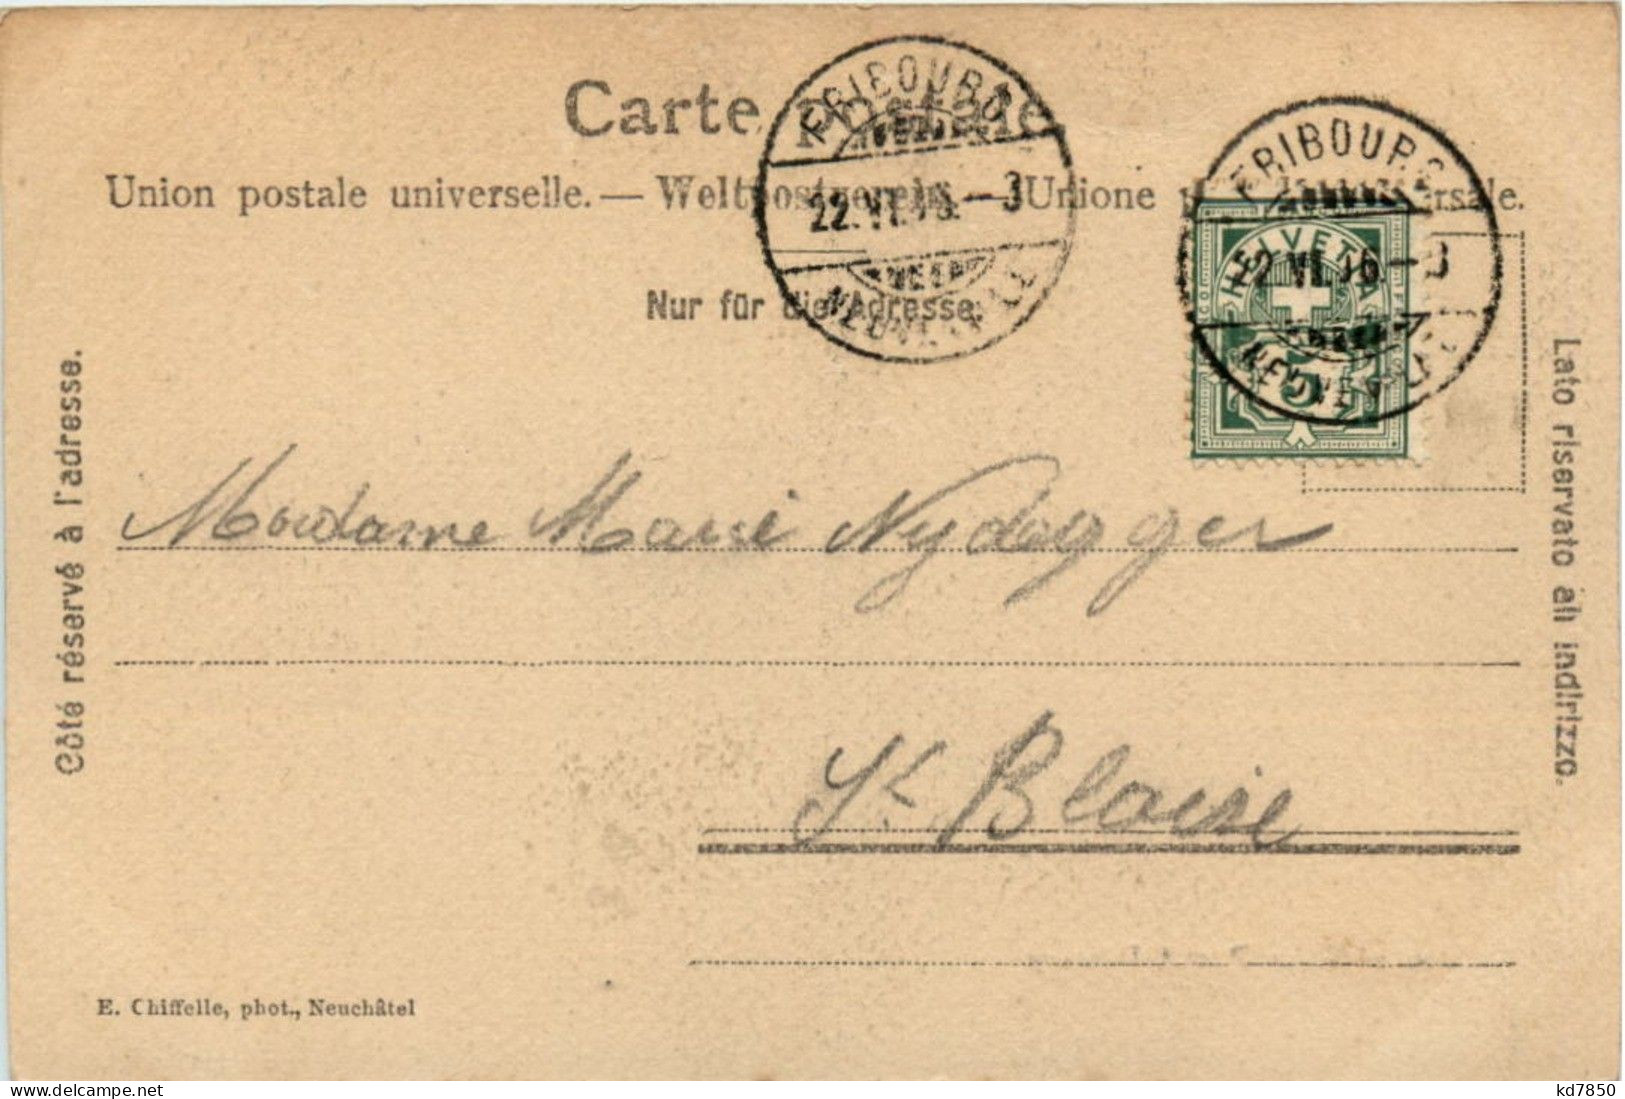 Carte postale
Union postale universelle. — Weltpostverein. — Unione postale universale.
Nur für die Adresse.
Côté réservé à l'adresse.
Lato riservato all indirizzo.
FRIBOURG
22.VI.06.–3
NEUVEVILLE
FRIBOURG
22.VI.06.–3
NEUVEVILLE
HELVETIA
5
Madame Marie Nydegger
St Blaise
E. Chiffelle, phot., Neuchâtel
www.delcampe.net
kd7850